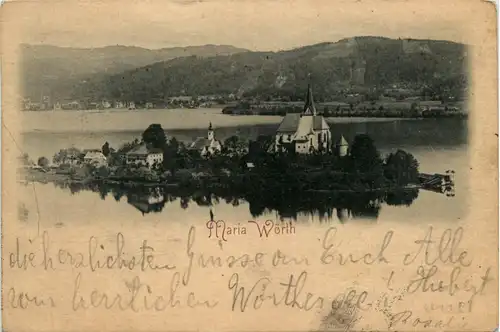 Maria Wörth
die herzlichsten Grüsse an Euch Alle
vom herrlichen Wörthersee
! Hubert
und
Rosal